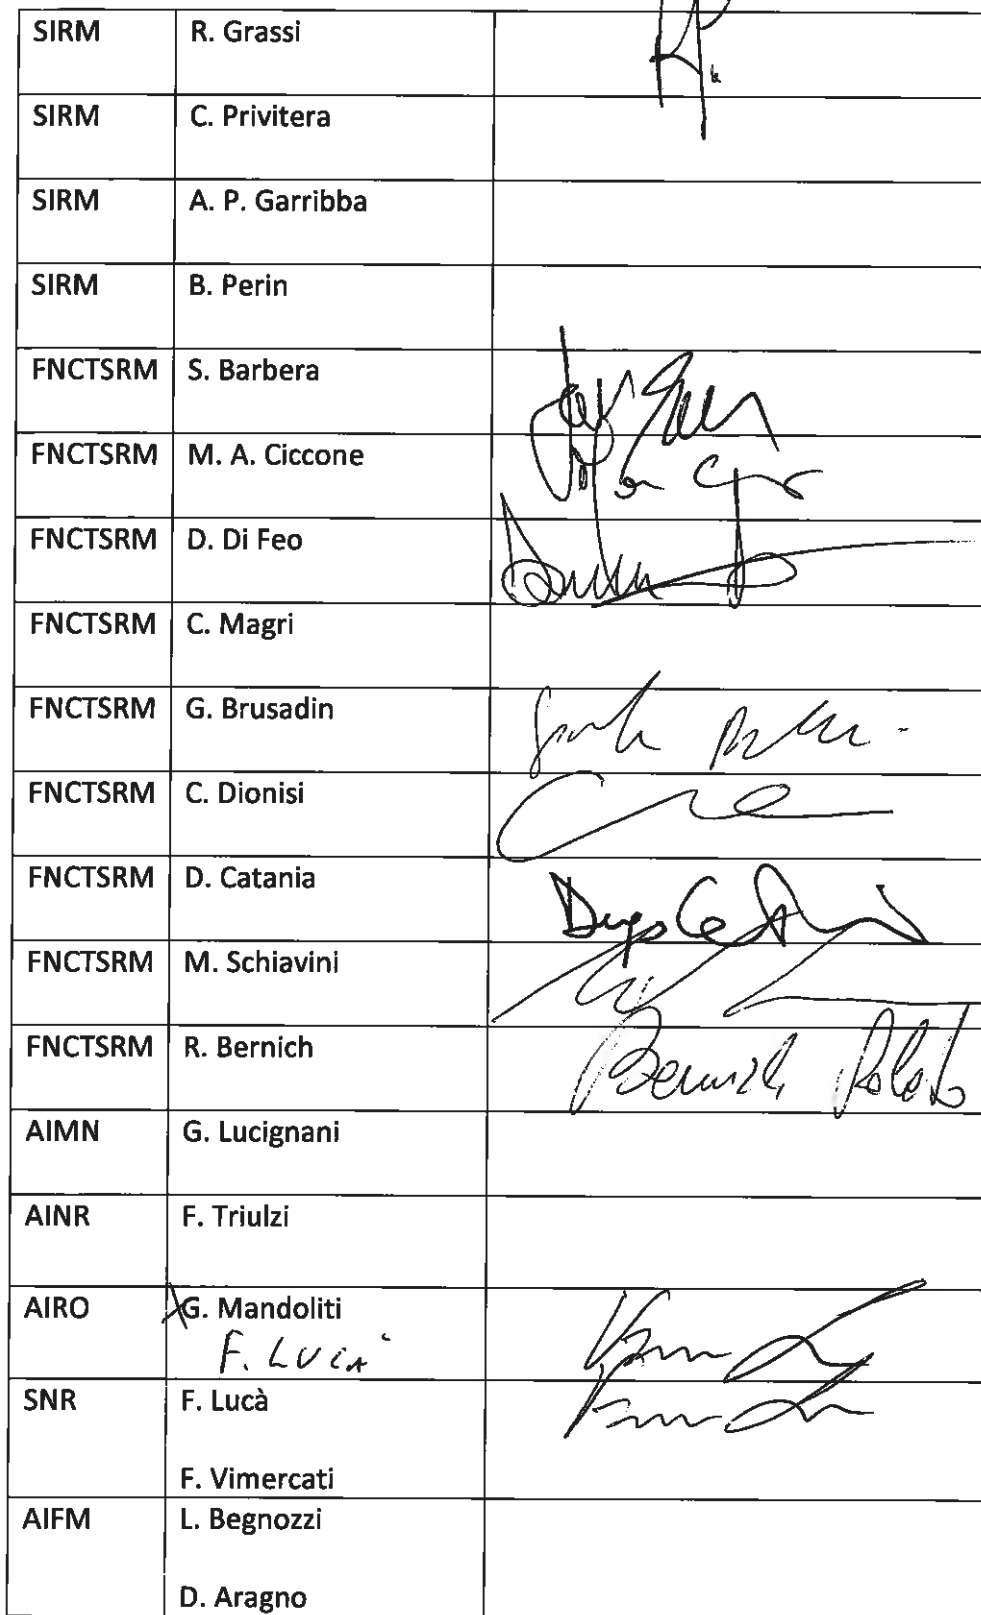 SIRM R. Grassi
SIRM C. Privitera
SIRM A. P. Garribba
SIRM B. Perin
FNCTSRM S. Barbera
FNCTSRM M. A. Ciccone
FNCTSRM D. Di Feo
FNCTSRM C. Magri
FNCTSRM G. Brusadin
FNCTSRM C. Dionisi
FNCTSRM D. Catania
FNCTSRM M. Schiavini
FNCTSRM R. Bernich
AIMN G. Lucignani
AINR F. Triulzi
AIRO G. Mandoliti
F. LUCA'
SNR F. Lucà
F. Vimercati
AIFM L. Begnozzi
D. Aragno